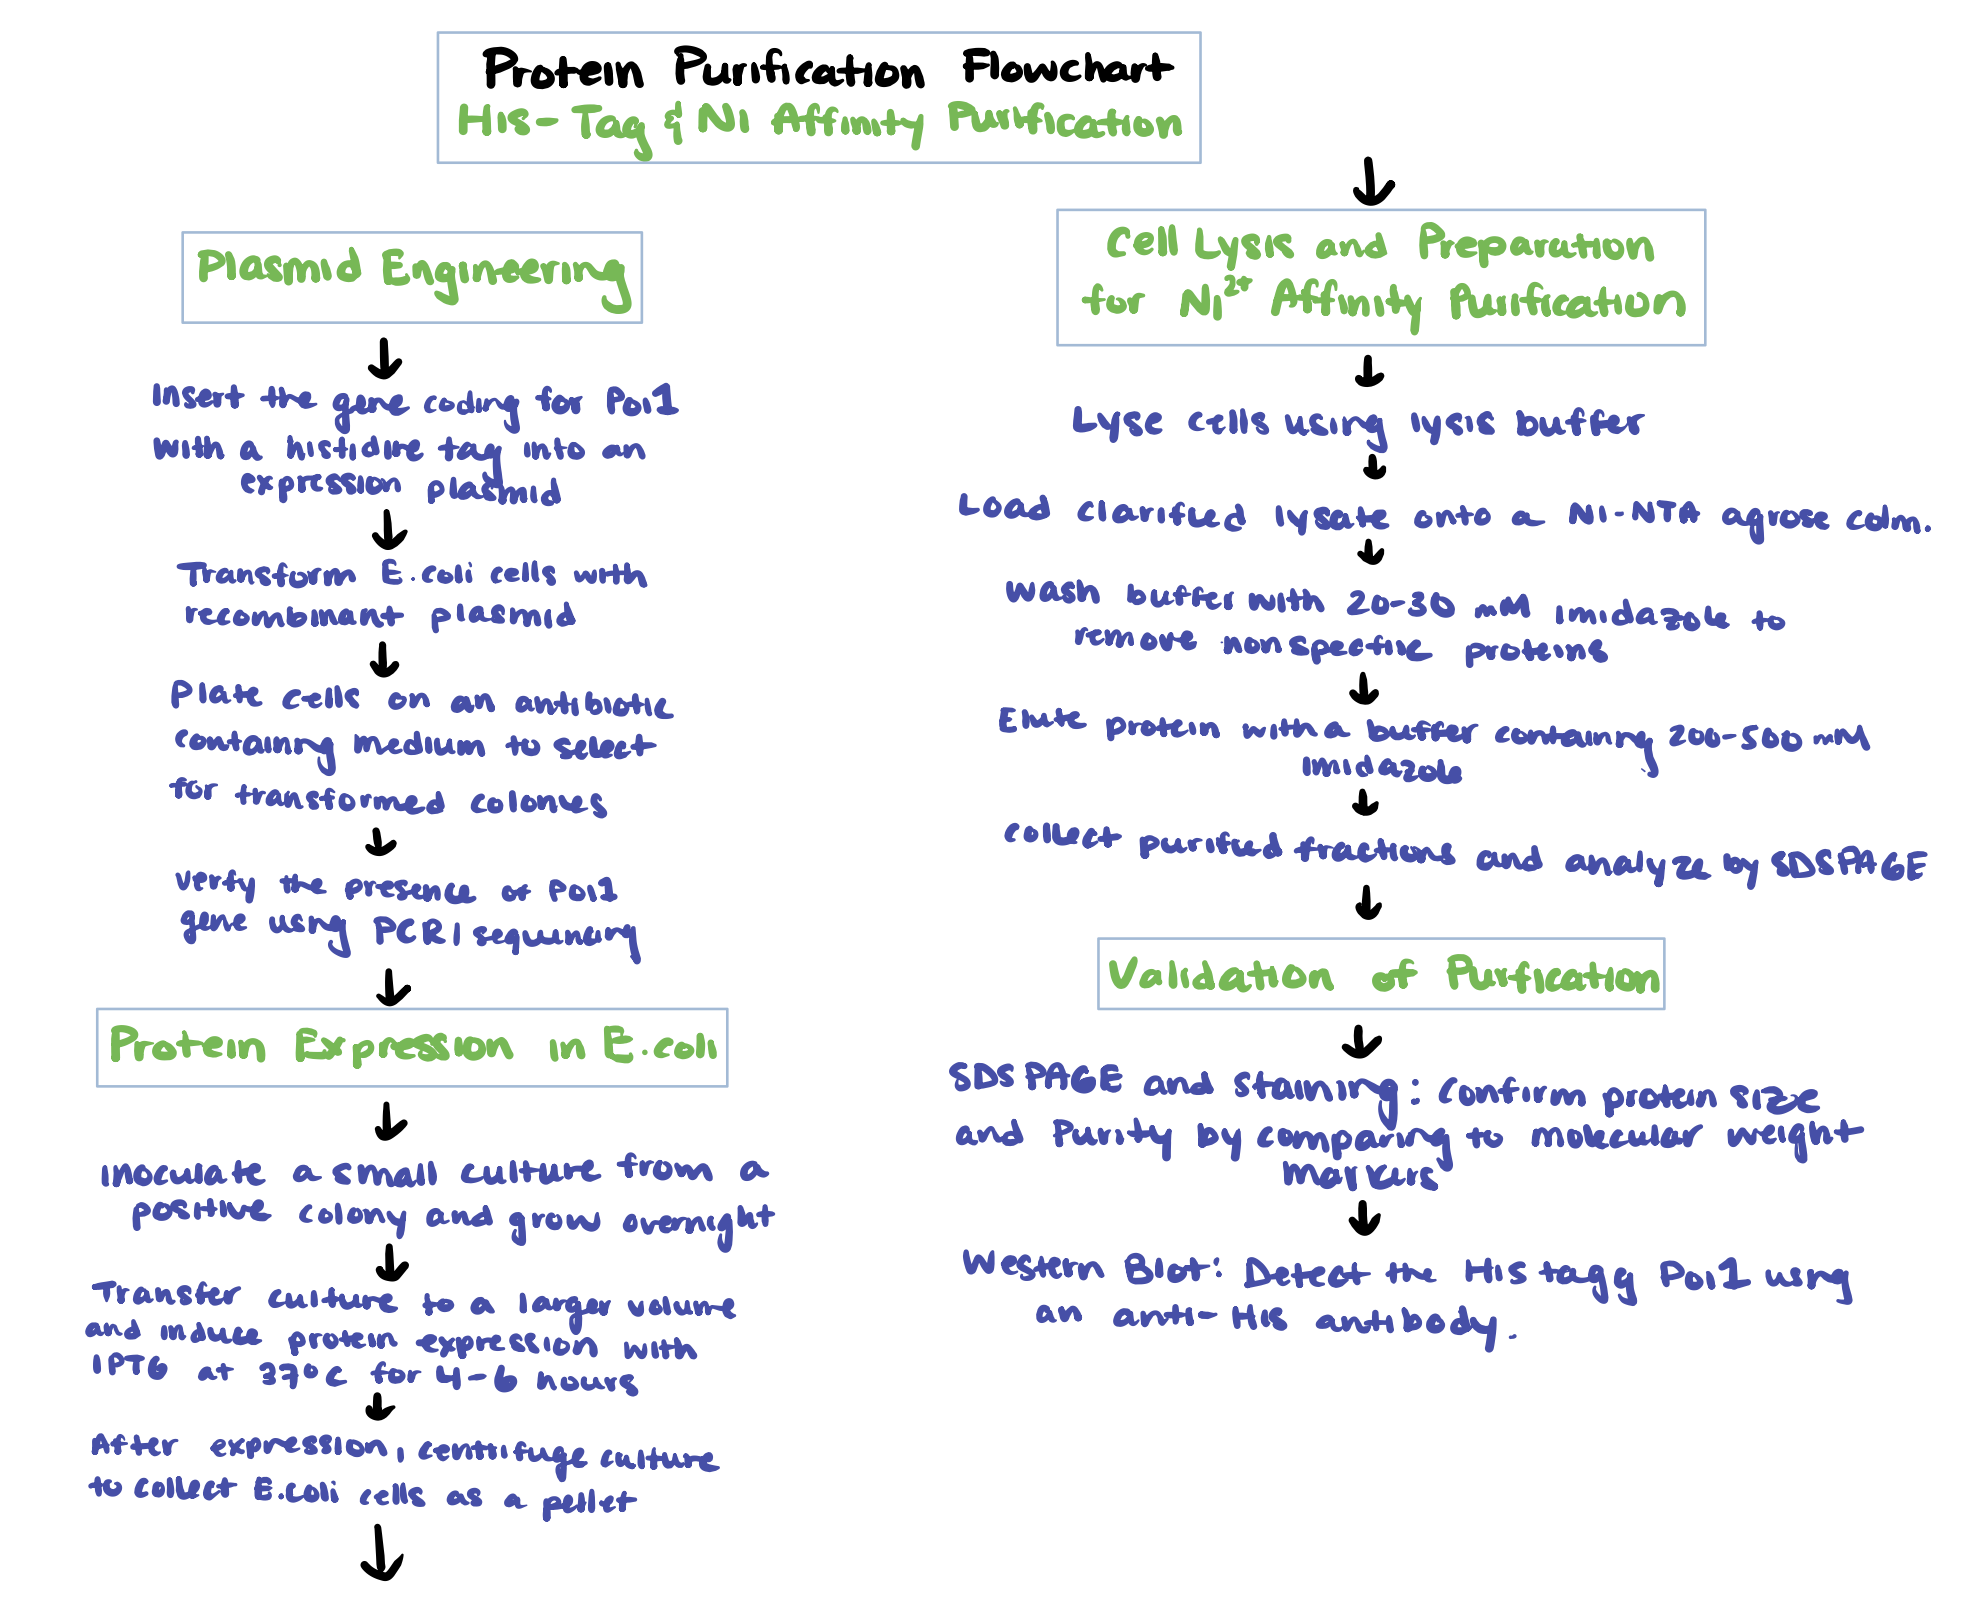 Protein Purification Flowchart
His-Tag & Ni Affinity Purification
Plasmid Engineering
Insert the gene coding for Poi1
with a histidine tag into an
expression plasmid
Transform E.coli cells with
recombinant plasmid
Plate cells on an antibiotic
containing medium to select
for transformed colonies
verfy the presence of Poi1
gene using PCR/sequencing
Protein Expression in E.coli
inoculate a small culture from a
positive colony and grow overnight
Transfer culture to a larger volume
and induce protein expression with
IPTG at 37°C for 4-6 hours
After expression, centrifuge culture
to collect E.coli cells as a pellet
Cell Lysis and Preparation
for Ni²⁺ Affinity Purification
Lyse cells using lysis buffer
Load clarified lysate onto a Ni-NTA agrose colm.
wash buffer with 20-30 mM imidazole to
remove nonspecific proteins
Elute protein with a buffer containing 200-500 mM
imidazole
collect purified fractions and analyze by SDSPAGE
Validation of Purfication
SDS PAGE and staining: confirm protein size
and Purity by comparing to molecular weight
markers
Western Blot: Detect the His tagg Poi1 using
an anti-His antibody.